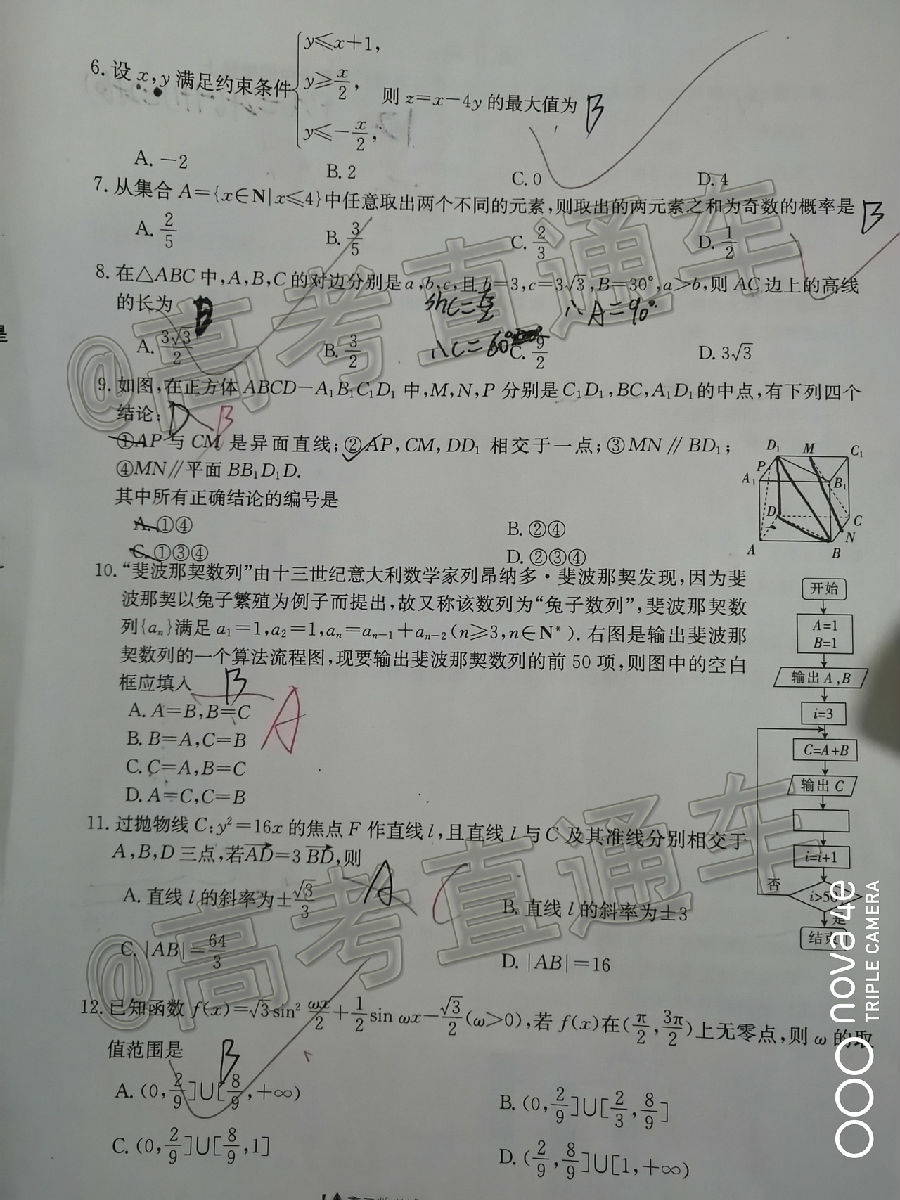 6. 设 x,y 满足约束条件{y≤x+1,
y≥x/2,
y≤-x/2,
则 z=x-4y 的最大值为 B
A. -2 B. 2 C. 0 D. 4
7. 从集合 A={x∈N|x≤4}中任意取出两个不同的元素,则取出的两元素之和为奇数的概率是 B
A. 2/5 B. 3/5 C. 2/3 D. 1/2
8. 在△ABC 中,A,B,C 的对边分别是 a,b,c,且 b=3,c=3√3,B=30°,a>b,则 AC 边上的高线
的长为 B sinC=√3/2 ∴A=90°
∴C=60°
A. 3√3/2 B. 3/2 C. 9/2 D. 3√3
9. 如图,在正方体 ABCD-A₁B₁C₁D₁ 中,M,N,P 分别是 C₁D₁,BC,A₁D₁ 的中点,有下列四个
结论: D B
①AP 与 CM 是异面直线;②AP,CM,DD₁ 相交于一点;③MN∥BD₁;
④MN∥平面 BB₁D₁D.
其中所有正确结论的编号是
A. ①④ B. ②④
C. ①③④ D. ②③④
D₁ M C₁
P
A₁ B₁
D C
N
A B
10. “斐波那契数列”由十三世纪意大利数学家列昂纳多·斐波那契发现,因为斐
波那契以兔子繁殖为例子而提出,故又称该数列为“兔子数列”,斐波那契数
列{aₙ}满足 a₁=1,a₂=1,aₙ=aₙ₋₁+aₙ₋₂(n≥3,n∈N*). 右图是输出斐波那
契数列的一个算法流程图,现要输出斐波那契数列的前 50 项,则图中的空白
框应填入 B
A. A=B,B=C A
B. B=A,C=B
C. C=A,B=C
D. A=C,C=B
开始
A=1
B=1
输出 A,B
i=3
C=A+B
输出 C
i=i+1
否
i>50
是
结束
11. 过抛物线 C:y²=16x 的焦点 F 作直线 l,且直线 l 与 C 及其准线分别相交于
A,B,D 三点,若AD=3BD,则 A C
A. 直线 l 的斜率为±√3/3 B. 直线 l 的斜率为±3
C. |AB|=64/3 D. |AB|=16
12. 已知函数 f(x)=√3sin² ωx/2+1/2 sin ωx-√3/2(ω>0),若 f(x)在(π/2,3π/2)上无零点,则 ω 的取
值范围是 B
A. (0,2/9]∪[8/9,+∞) B. (0,2/9]∪[2/3,8/9]
C. (0,2/9]∪[8/9,1] D. (2/9,8/9]∪[1,+∞)
@高考直通车
@高考直通车
nova 4e
TRIPLE CAMERA